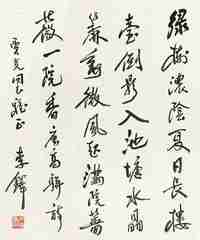 綠樹濃陰夏日長樓
臺倒影入池塘水晶
簾動微風起滿院薔
薇一院香唐高駢詩
同志雅正
李鐸